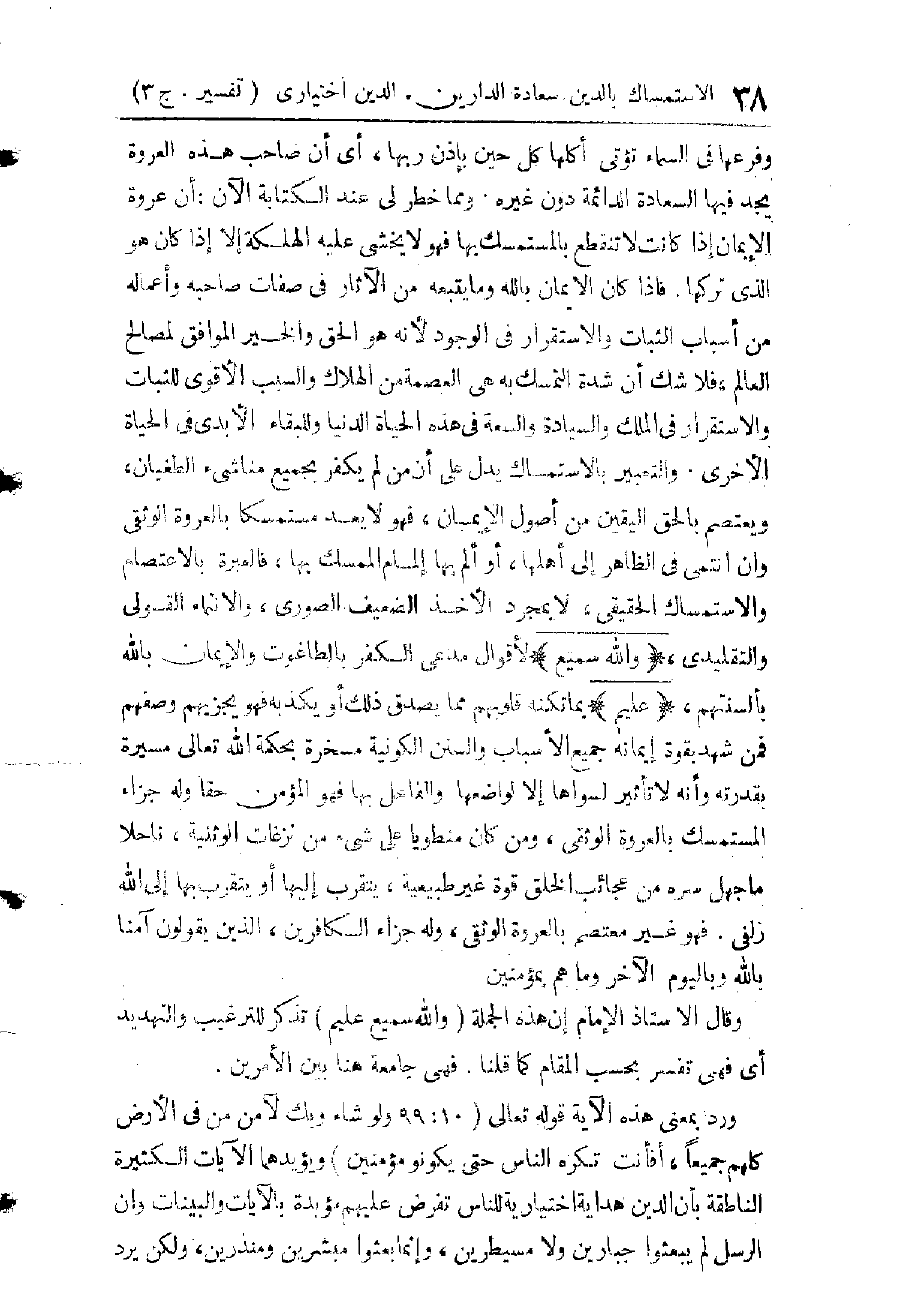 ٣٨ الاستمساك بالدين سعادة الدارين . الدين أختيارى ( تفسير . ج ٣)
وفرعها فى السماء تؤتى أكلها كل حين بإذن ربها ، أى أن صاحب هذه العروة
يجد فيها السعادة الدائمة دون غيره . ومما خطر لى عند الكتابة الآن : أن عروة
الإيمان إذا كانت لا تنقطع بالمستمسك بها فهو لا يخشى عليه الهلكة إلا إذا كان هو
الذى تركها . فاذا كان الايمان بالله وما يتبعه من الآثار فى صفات صاحبه وأعماله
من أسباب الثبات والاستقرار فى الوجود لأنه هو الحق والخير الموافق لمصالح
العالم ، فلا شك أن شدة التمسك به هى العصمة من الهلاك والسبب الأقوى للثبات
والاستقرار فى الملك والسيادة والسعة فى هذه الحياة الدنيا وللبقاء الأبدى فى الحياة
الأخرى . والتعبير بالاستمساك يدل على أن من لم يكفر بجميع مناشىء الطغيان ،
ويعتصم بالحق اليقين من أصول الإيمان ، فهو لا يعد مستمسكا بالعروة الوثقى
وان انتمى فى الظاهر إلى أهلها ، أو ألم بها إلمام الممسك بها ، فالعبرة بالاعتصام
والاستمساك الحقيقى ، لا بمجرد الأخذ الضعيف الصورى ، والانتماء القولى
والتقليدى ، ﴿ والله سميع ﴾ لأقوال مدعى الكفر بالطاغوت والإيمان بالله
بألسنتهم ، ﴿ عليم ﴾ بما تكنه قلوبهم مما يصدق ذلك أو يكذبه فهو يجزيهم وصفهم
فمن شهد بقوة إيمانه جميع الأسباب والسنن الكونية مسخرة بحكمة الله تعالى مسيرة
بقدرته وأنه لا تأثير لسواها إلا لواضعها والفاعل بها فهو المؤمن حقا وله جزاء
المستمسك بالعروة الوثقى ، ومن كان منطويا على شىء من نزغات الوثنية ، ناحلا
ما جهل سره من عجائب الخلق قوة غير طبيعية ، يتقرب إليها أو يتقرب بها إلى الله
زلفى . فهو غير معتصم بالعروة الوثقى ، وله جزاء الكافرين ، الذين يقولون آمنا
بالله وباليوم الآخر وما هم بمؤمنين
وقال الاستاذ الإمام إن هذه الجملة ( والله سميع عليم ) تذكر للترغيب والتهديد
أى فهى تفسر بحسب المقام كما قلنا . فهى جامعة هنا بين الأمرين .
ورد بمعنى هذه الآية قوله تعالى ( ١٠ : ٩٩ ولو شاء ربك لآمن من فى الأرض
كلهم جميعاً ، أفأنت تكره الناس حتى يكونو مؤمنين ) ويؤيدهما الآيات الكثيرة
الناطقة بأن الدين هداية اختيارية للناس تفرض عليهم مؤيدة بالآيات والبينات وان
الرسل لم يبعثوا جبارين ولا مسيطرين ، وإنما بعثوا مبشرين ومنذرين ، ولكن يرد